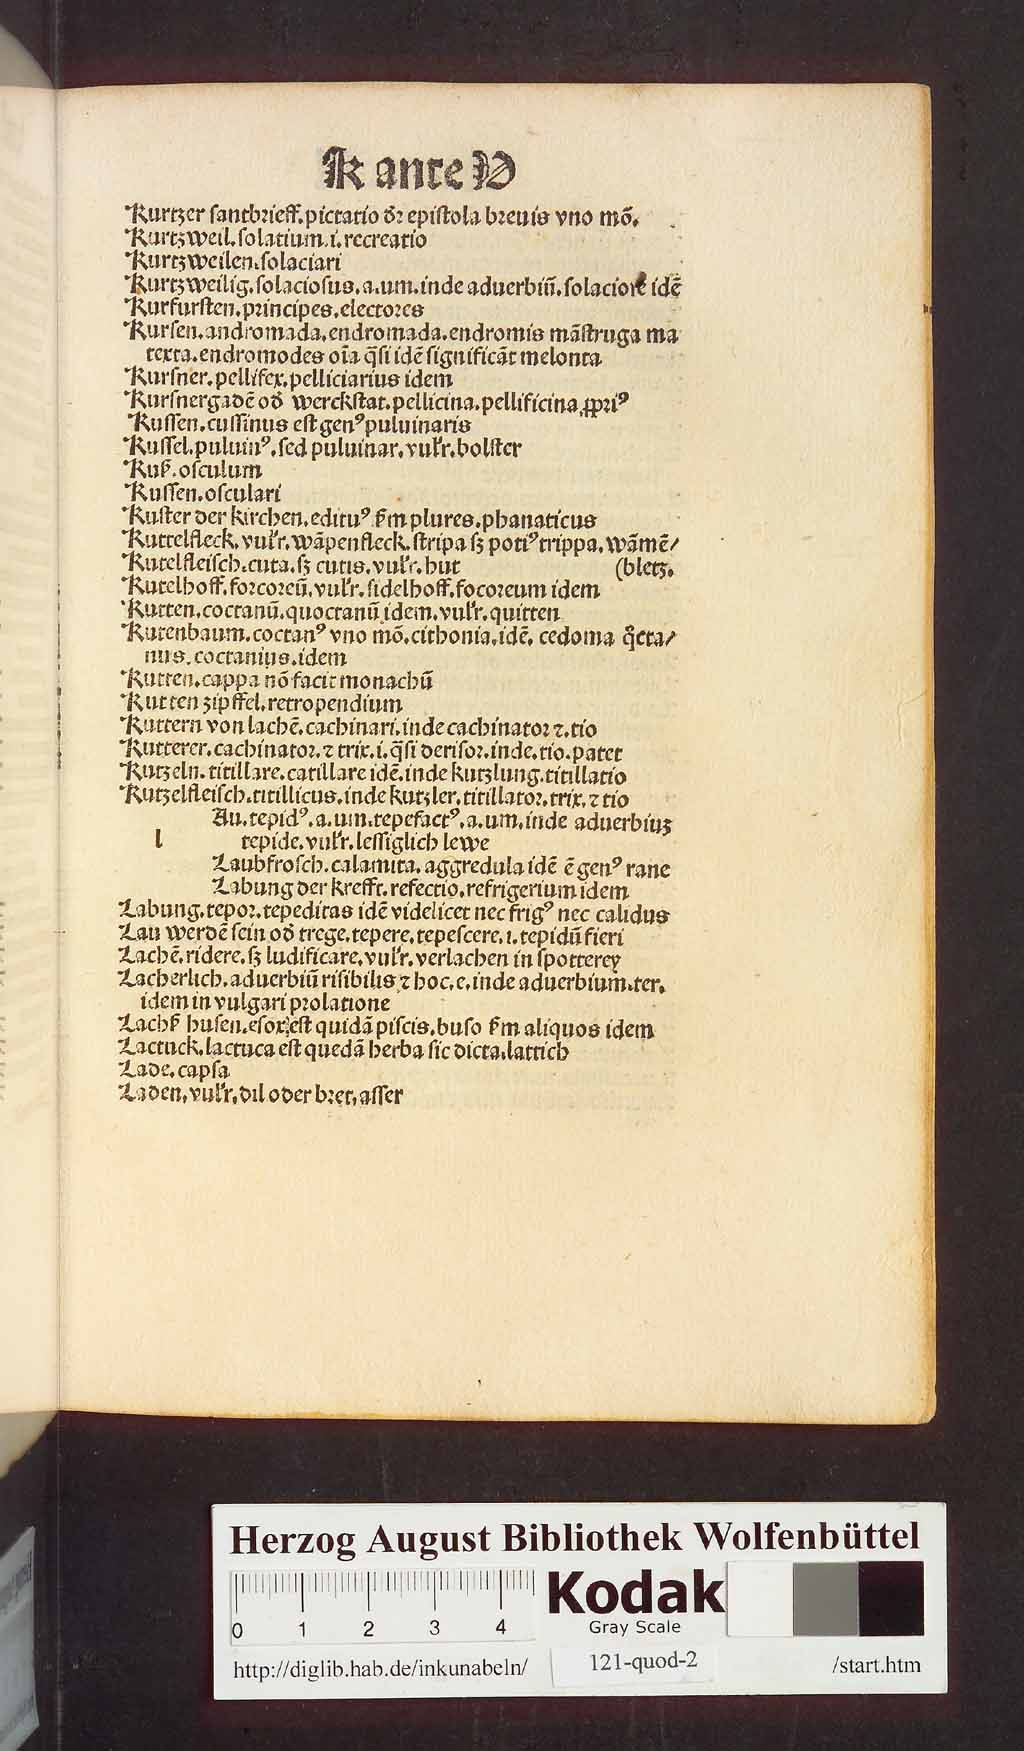 K ante V
Kurtzer santbrieff. pictatio dr̄ epistola breuis vno mō.
Kurtzweil. solatium. i. recreatio
Kurtzweilen. solaciari
Kurtzweilig. solaciosus. a. um. inde aduerbiū. solaciore idē
Kurfursten. principes. electores
Kursen. andromada. endromada. endromis māstruga ma
texta. endromodes oīa q̄si idē significāt melonta
Kursner. pellifex. pelliciarius idem
Kursnergadē od̄ werckstat. pellicina. pellificina ꝓpriꝰ
Kussen. cussinus est genꝰ puluinaris
Kussel. puluinꝰ. sed puluinar. vulr̄. bolster
Kuß. osculum
Kussen. osculari
Kuster der kirchen. edituꝰ ẜm plures. phanaticus
Kuttelfleck. vulr̄. wāpenfleck. stripa sꝫ potiꝰ trippa. wāmē/
Kutelfleisch. cuta. sꝫ cutis. vulr̄. hut (bletz.
Kutelhoff. forcoreū. vulr̄. sidelhoff. focoreum idem
Kutten. coctanū. quoctanū idem. vulr̄. quitten
Kutenbaum. coctanꝰ vno mō. cithonia. idē. cedoma q̄cta/
nus. coctanius. idem
Kutten. cappa nō facit monachū
Kutten zipffel. retropendium
Kuttern von lachē. cachinari. inde cachinator ⁊. tio
Kutterer. cachinator. ⁊ trix. i. q̄si derisor. inde. tio. patet
Kutzeln. titillare. catillare idē. inde kutzlung. titillatio
Kutzelfleisch. titillicus. inde kutzler. titillator. trix. ⁊ tio
Au. tepidꝰ. a. um. tepefactꝰ. a. um. inde aduerbiuꝫ
l tepide. vulr̄. lessiglich lewe
Laubfrosch. calamita. aggredula idē ē genꝰ rane
Labung der krefft. refectio. refrigerium idem
Labung. tepor. tepeditas idē videlicet nec frigꝰ nec calidus
Lau werdē sein od̄ trege. tepere. tepescere. i. tepidū fieri
Lachē. ridere. sꝫ ludificare. vulr̄. verlachen in spotterey
Lacherlich. aduerbiū risibilis ⁊ hoc. e. inde aduerbium. ter.
idem in vulgari prolatione
Lachß husen. esox. est quidā piscis. huso ẜm aliquos idem
Lactuck. lactuca est quedā herba sic dicta. lattich
Lade. capsa
Laden. vulr̄. dil oder bret. asser
Herzog August Bibliothek Wolfenbüttel
0 1 2 3 4
Kodak
Gray Scale
http://diglib.hab.de/inkunabeln/ 121-quod-2 /start.htm